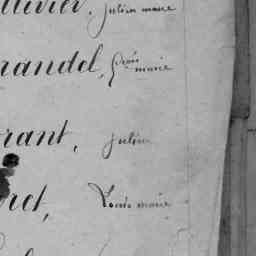 llivier, julien marie
randel, jean marie
rant, julien
ret, Louis marie